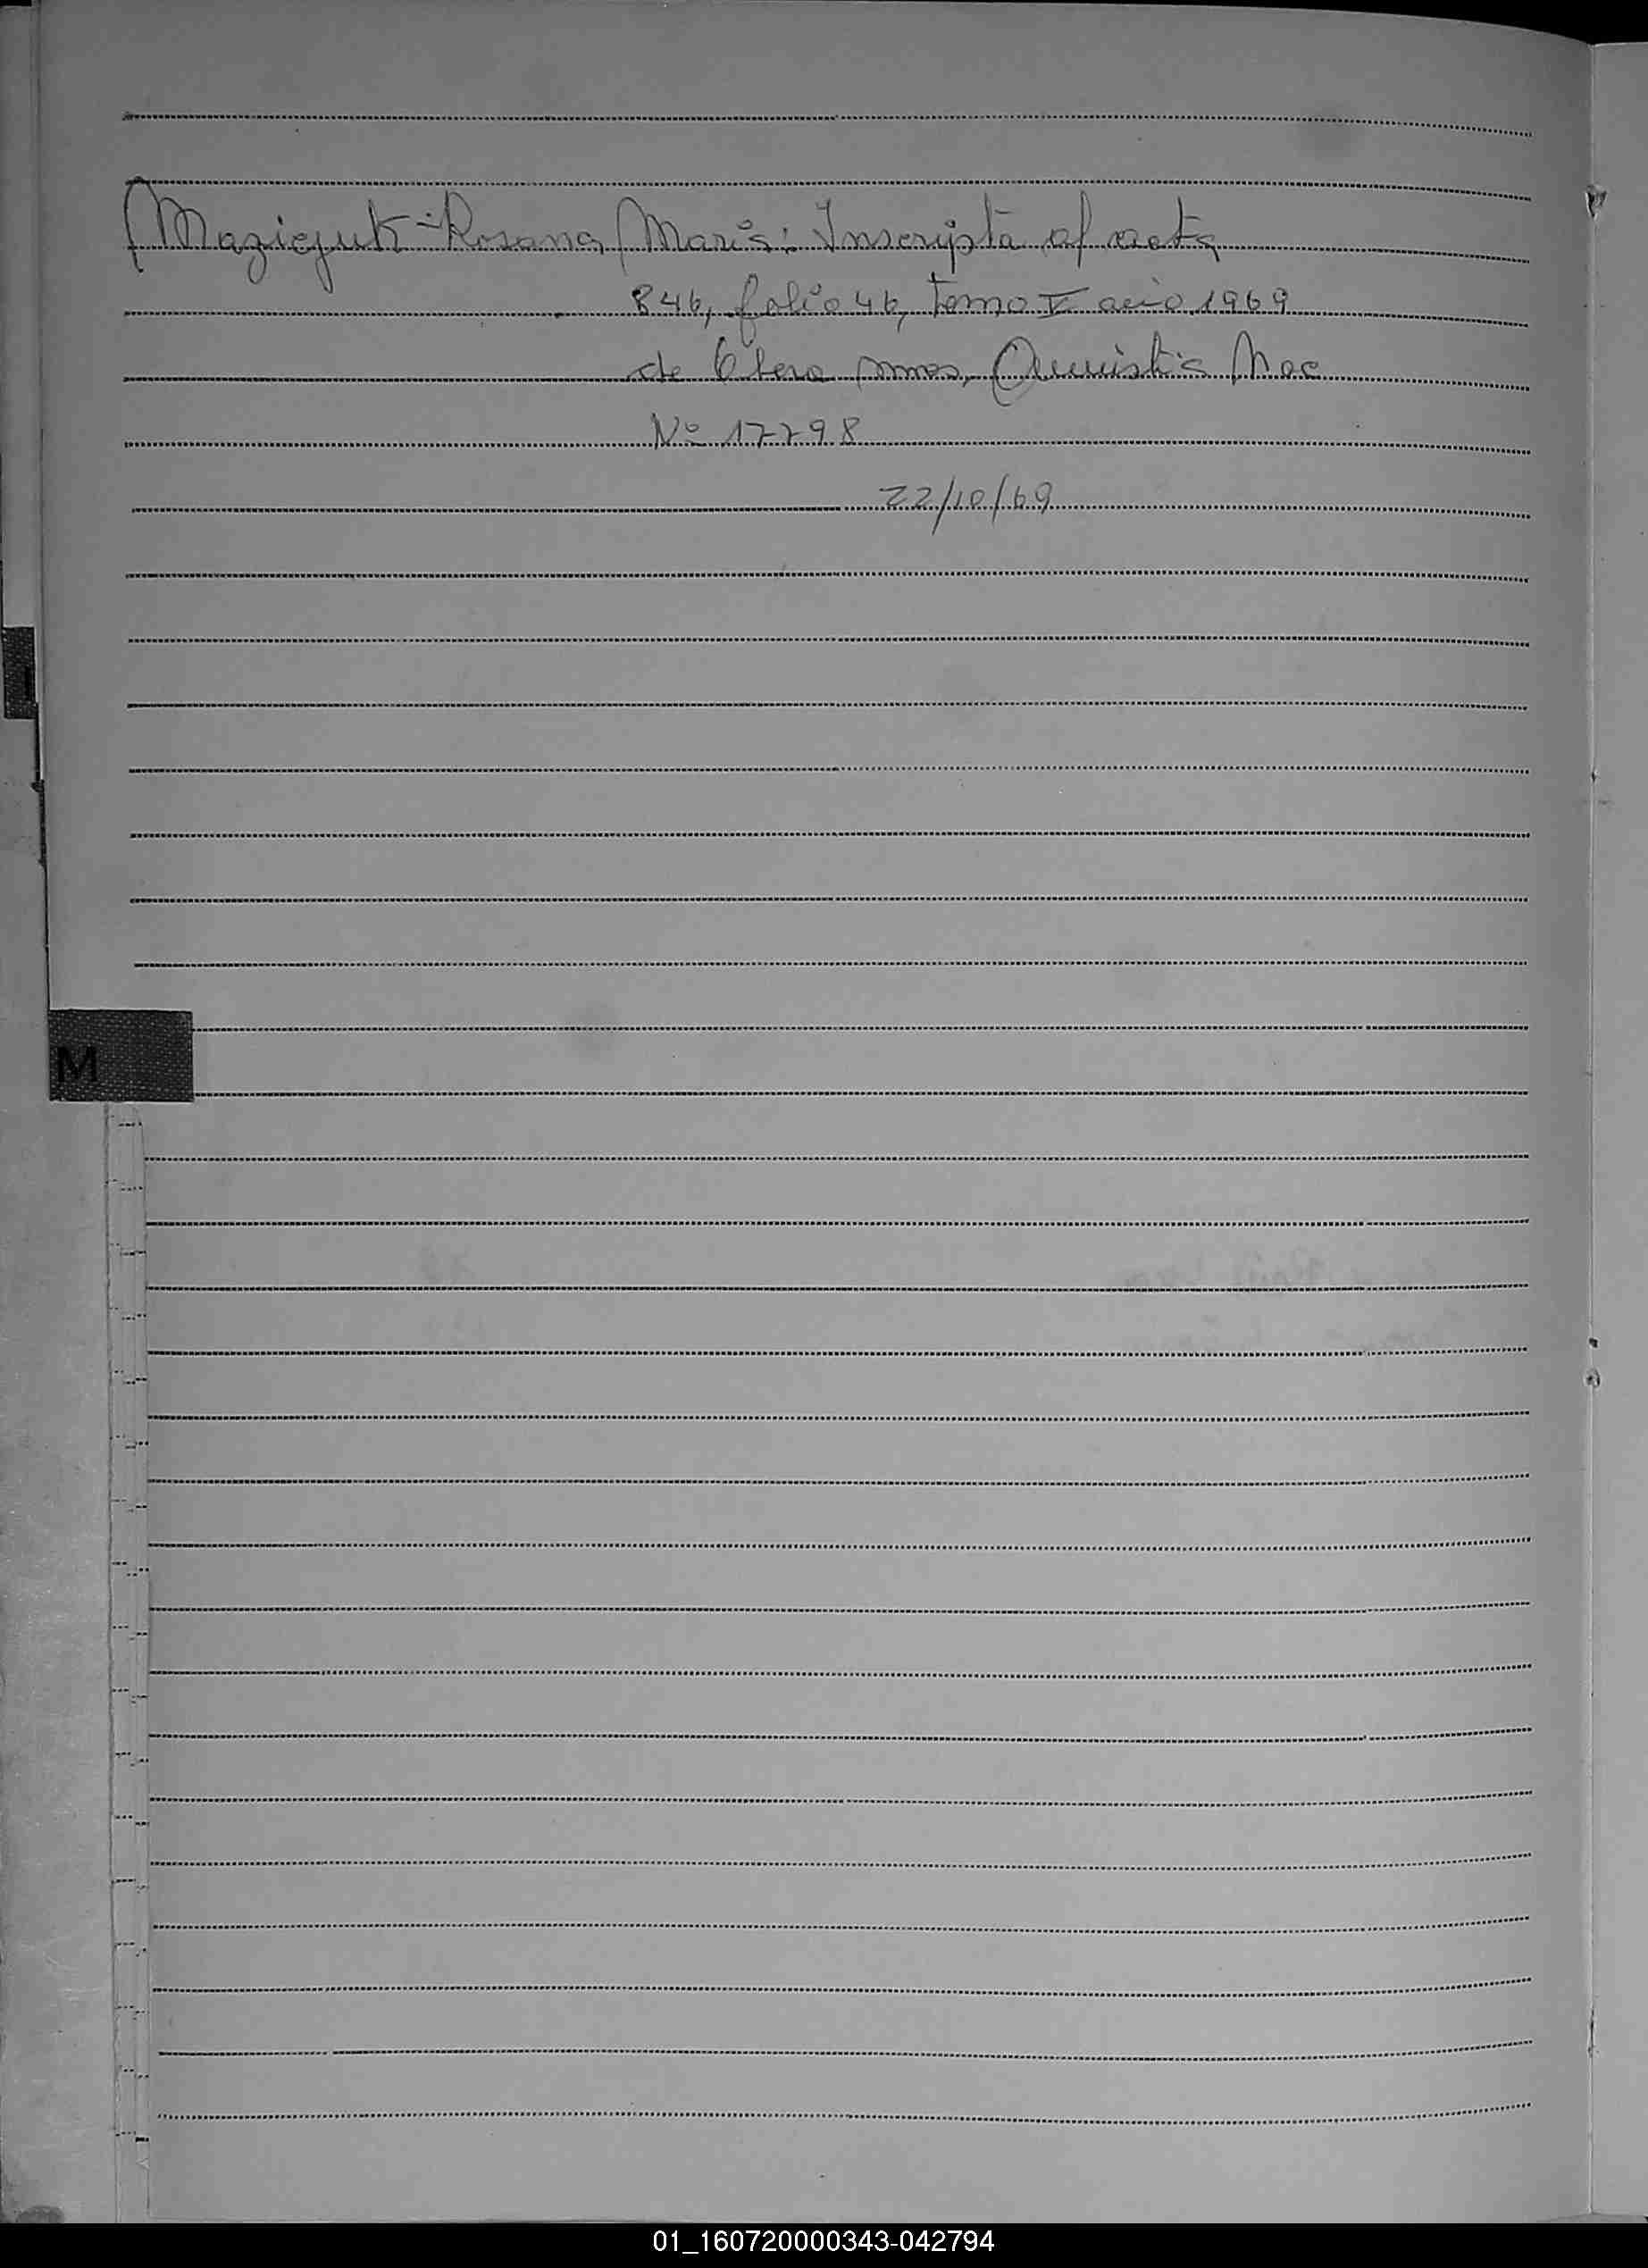 Maziejuk - Rosana Maris: Inscripta al acta
846, folio 46, Tomo V año 1969
de Obera Mnes, Amnistia Nac
Nº 17298
22/10/69
M
01_160720000343-042794